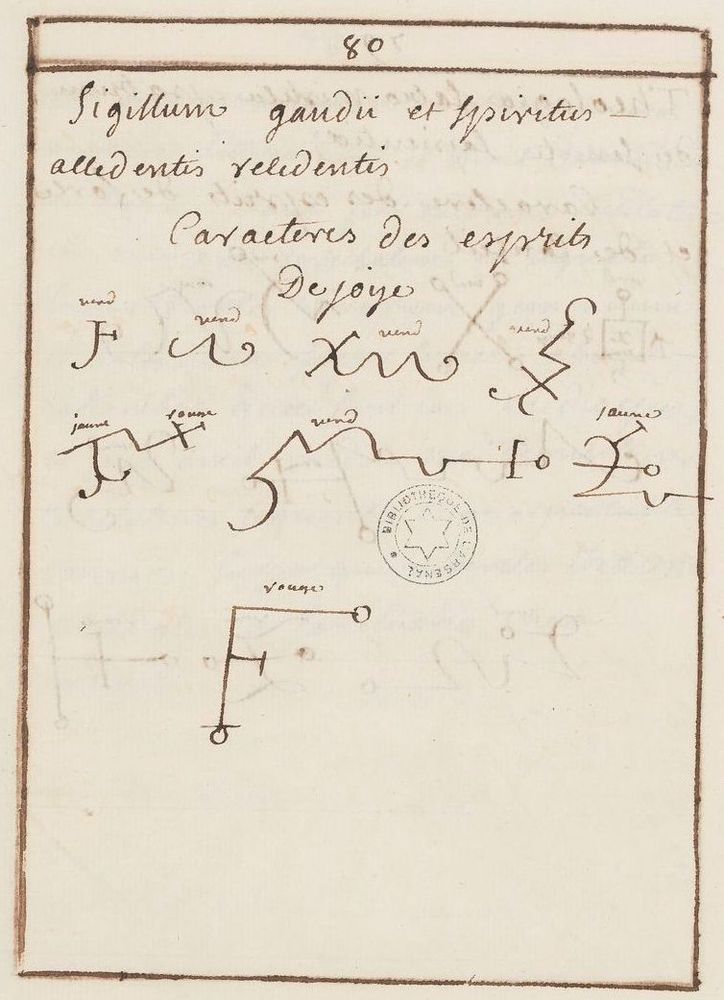 80
Sigillum gaudii et spiritus
alledentis reledentis
Caracteres des esprits
De joye
verd
verd
verd
verd
jaune rouge
verd
jaune
BIBLIOTHEQUE DE L'ARSENAL
rouge